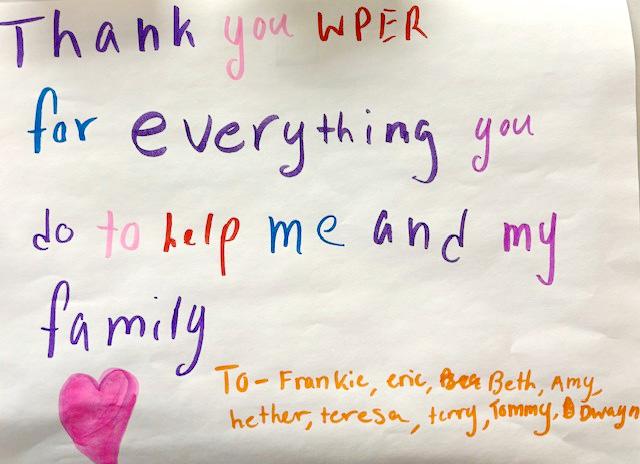 Thank you WPER
for everything you
do to help me and my
family
To- Frankie, eric, Beth, Amy,
hether, teresa, terry, Tommy, Dwayn